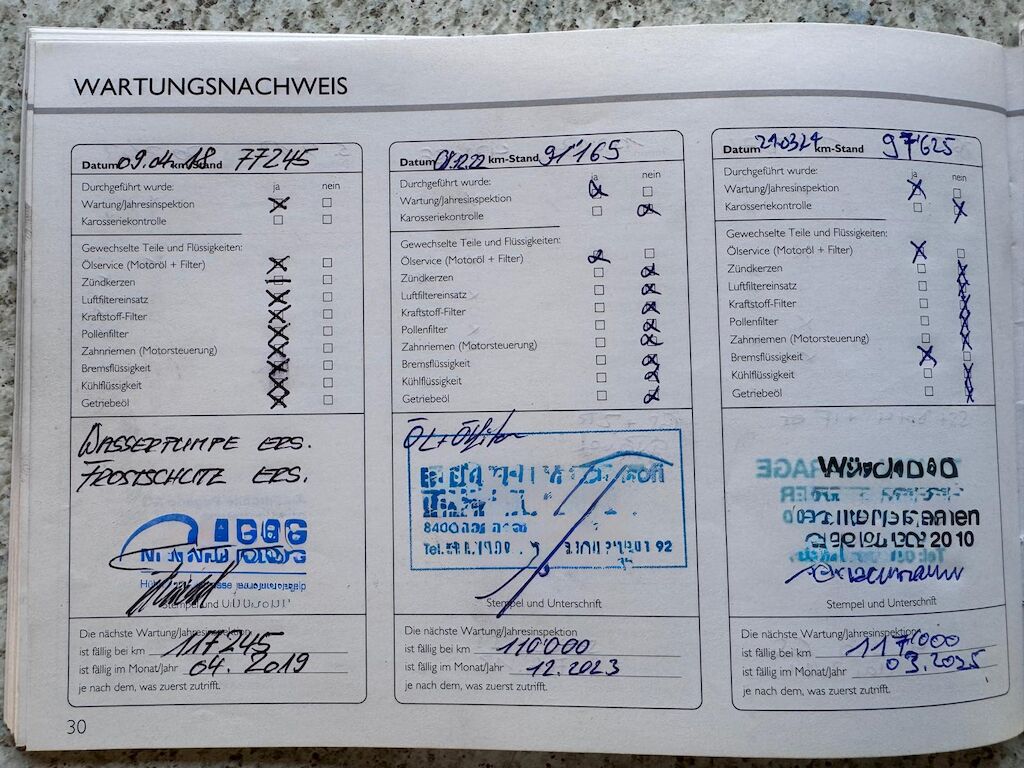 WARTUNGSNACHWEIS
Datum 09.04.18 km-Stand 77245
Durchgeführt wurde: ja nein
Wartung/Jahresinspektion
Karosseriekontrolle
Gewechselte Teile und Flüssigkeiten:
Ölservice (Motoröl + Filter)
Zündkerzen
Luftfiltereinsatz
Kraftstoff-Filter
Pollenfilter
Zahnriemen (Motorsteuerung)
Bremsflüssigkeit
Kühlflüssigkeit
Getriebeöl
WASSERPUMPE ERS.
FROSTSCHUTZ ERS.
Stempel und
Die nächste Wartung/Jahresinspektion
ist fällig bei km 117245
ist fällig im Monat/Jahr 04. 2019
je nach dem, was zuerst zutrifft.
Datum 01.12.22 km-Stand 91'165
Durchgeführt wurde: ja nein
Wartung/Jahresinspektion
Karosseriekontrolle
Gewechselte Teile und Flüssigkeiten:
Ölservice (Motoröl + Filter)
Zündkerzen
Luftfiltereinsatz
Kraftstoff-Filter
Pollenfilter
Zahnriemen (Motorsteuerung)
Bremsflüssigkeit
Kühlflüssigkeit
Getriebeöl
Öl + Ölfilter
Tel. 92
Stempel und Unterschrift
Die nächste Wartung/Jahresinspektion
ist fällig bei km 110'000
ist fällig im Monat/Jahr 12.2023
je nach dem, was zuerst zutrifft.
Datum 21.03.24 km-Stand 97'625
Durchgeführt wurde: ja nein
Wartung/Jahresinspektion
Karosseriekontrolle
Gewechselte Teile und Flüssigkeiten:
Ölservice (Motoröl + Filter)
Zündkerzen
Luftfiltereinsatz
Kraftstoff-Filter
Pollenfilter
Zahnriemen (Motorsteuerung)
Bremsflüssigkeit
Kühlflüssigkeit
Getriebeöl
20 10
Stempel und Unterschrift
Die nächste Wartung/Jahresinspektion
ist fällig bei km 117'000
ist fällig im Monat/Jahr 03.2025
je nach dem, was zuerst zutrifft.
30